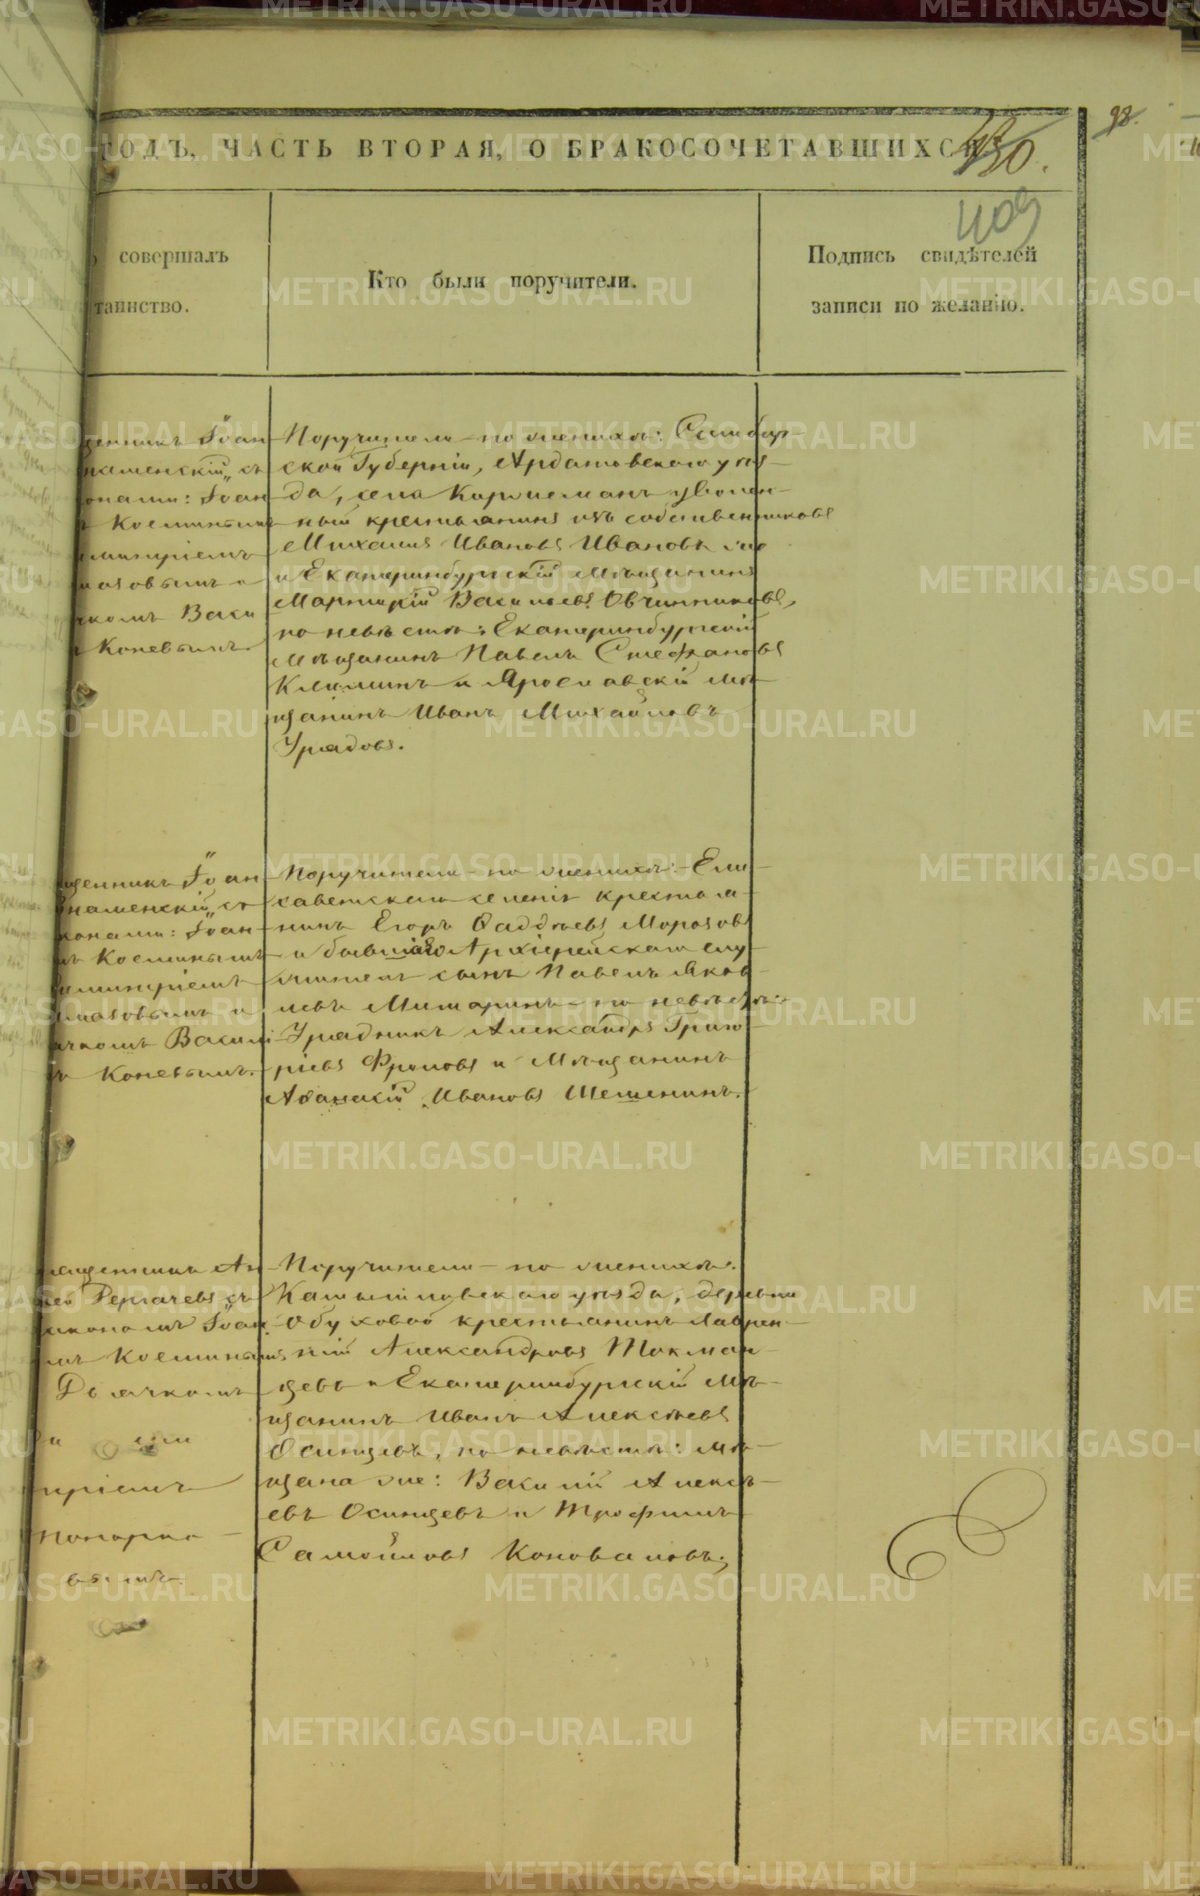 98.
ГОДЪ, ЧАСТЬ ВТОРАЯ, О БРАКОСОЧЕТАВШИХСЯ
совершалъ
таинство.
Кто были поручители.
Подпись свидѣтелей
записи по желанію.
Іоан
съ
Іоан
Косминымъ
и
Васи
Коневымъ.
Поручители по женихѣ: Симбир-
ской Губерніи, Ардатовскаго уѣз-
да, села уволен-
ный крестьянинъ изъ собственниковъ
Михаилъ Ивановъ Ивановъ
и Екатеринбургскій мѣщанинъ
Васильевъ Овчинниковъ,
по невѣстѣ: Екатеринбургскій
мѣщанинъ Павелъ Стефановъ
и Ярославскій мѣ-
щанинъ Иванъ Михайловъ
Урядовъ.
щенникъ Іоан
Знаменскій съ
конами: Іоан-
Косминымъ
и
Васили
Коневымъ.
Поручители по женихѣ: Ели-
саветскаго селенія крестья-
нинъ Егоръ Фаддѣевъ Морозовъ
и бывшаго Архіерейскаго слу-
жителя сынъ Павелъ Яков-
левъ по невѣстѣ:
Урядникъ Александръ Григо-
рьевъ Фроловъ и мѣщанинъ
Ивановъ
священникъ Ан
съ
Іоан
Косминымъ
Дьячкомъ
Пономаре
вымъ.
Поручители по женихѣ:
Камышловскаго уѣзда, деревни
Обуховой крестьянинъ Лаврен-
тій Александровъ Токман-
цевъ и Екатеринбургскій мѣ-
щанинъ Иванъ Алексѣевъ
Осинцевъ, по невѣстѣ: мѣ-
щана же: Василій Алексѣ-
евъ Осинцевъ и Трофимъ
Самойловъ Коноваловъ.
METRIKI.GASO-URAL.RU